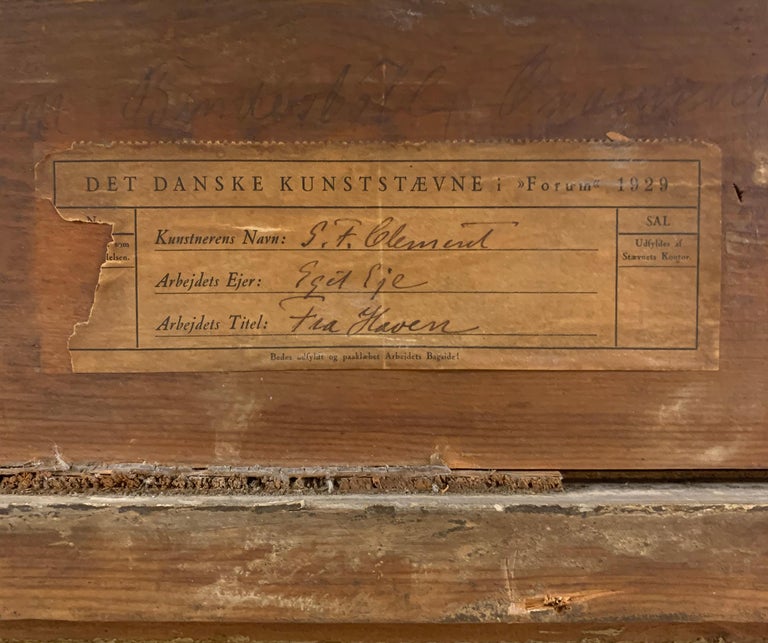 DET DANSKE KUNSTSTÆVNE i »Forum« 1929
Kunstnerens Navn: G. F. Clement
Arbejdets Ejer: Eget Eje
Arbejdets Titel: Fra Haven
SAL
Udfyldes af
Stævnets Kontor.
Bedes udfyldt og paaklæbet Arbejdets Bagside!